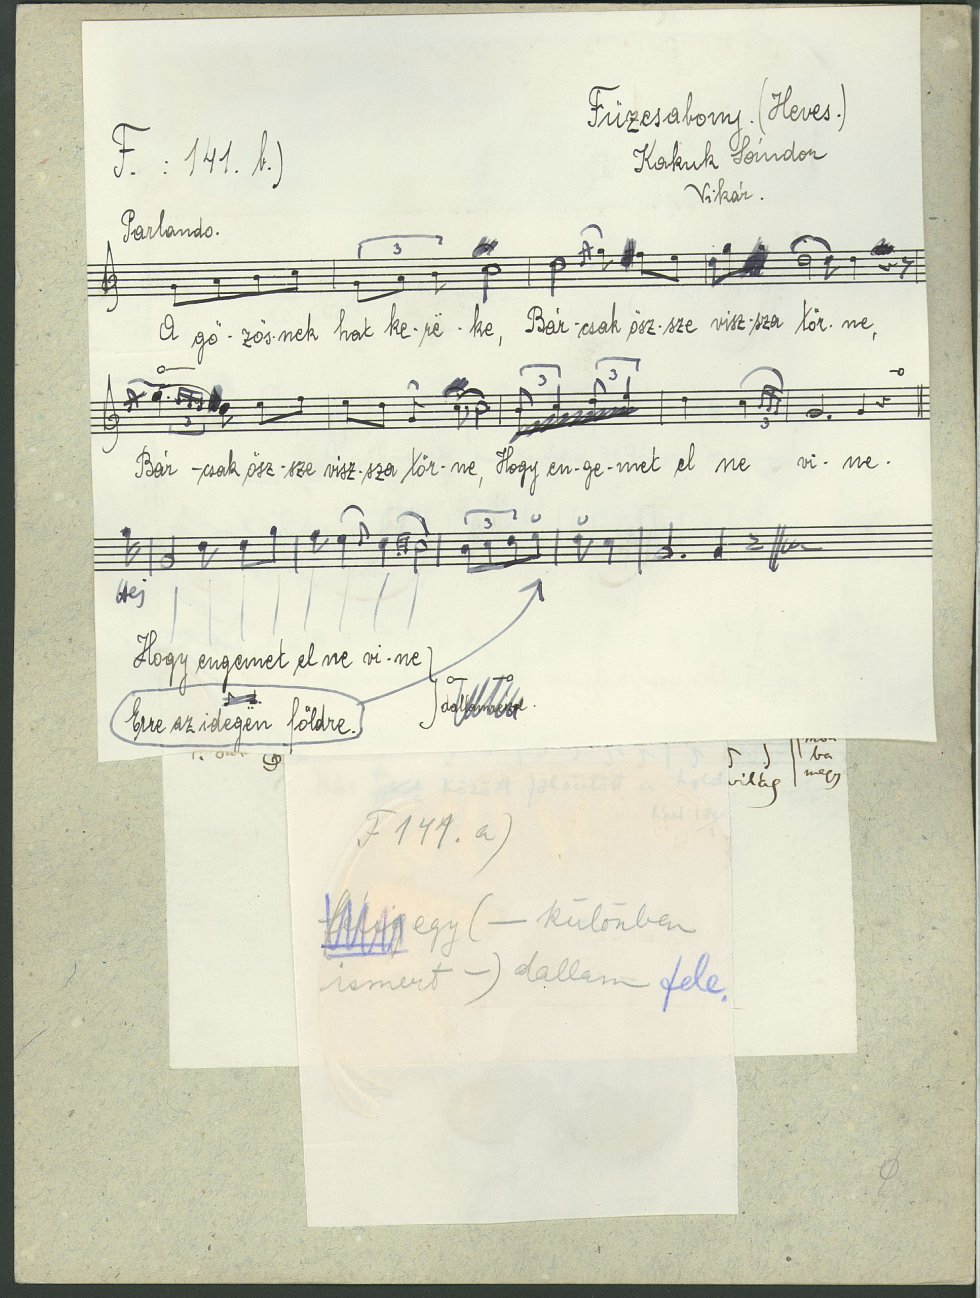 Füzesabony. (Heves.)
F. : 141. b.)
Kakuk Sándor
Vikár.
Parlando.
3
A gő - zös-nek hat ke-rë - ke, Bár-csak ösz-sze visz-sza tör-ne,
3 3 3 3
Bár -csak ösz-sze visz-sza tör-ne, Hogy en-ge-met el ne vi- ne.
3
Hej
Hogy engemet el ne vi-ne
Erre az idegën földre.
világ
ba
megy
F 141. a)
egy (— különben
ismert —) dallam fele.